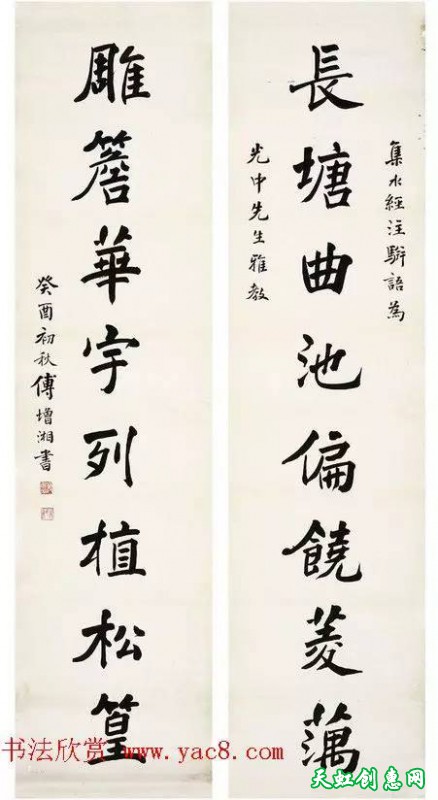 集水經注駢語為
長塘曲池偏饒菱蕅
光中先生雅教
雕簷華宇列植松篁
癸酉初秋傅增湘書
书法欣赏 www.yac8.com
天虹创惠网